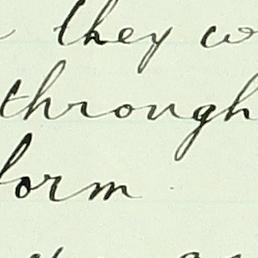 they w
through
form